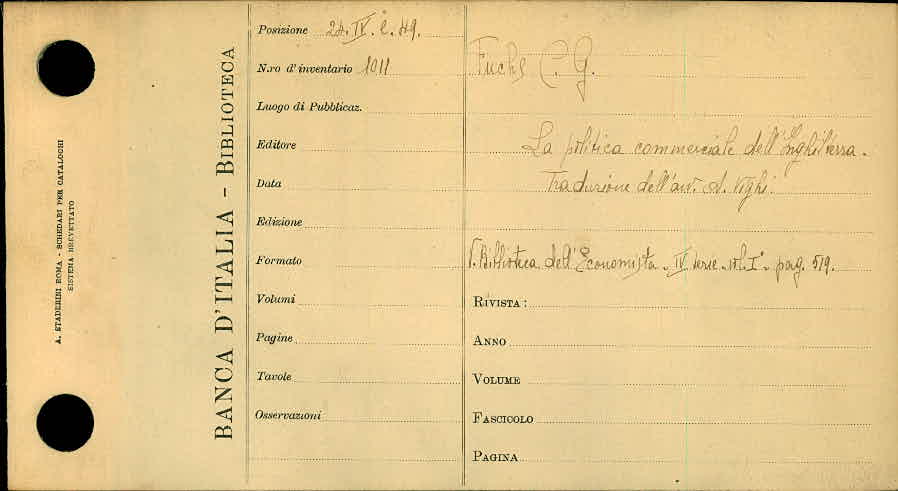 A. STADERINI ROMA - SCHEDARI PER CATALOGHI
SISTEMA BREVETTATO
BANCA D'ITALIA - BIBLIOTECA
Posizione 24. IV. C. 49.
N.ro d'inventario 1011
Luogo di Pubblicaz.
Editore
Data
Edizione
Formato
Volumi
Pagine
Tavole
Osservazioni
Fuchs C. G.
La politica commerciale dell'Inghilterra.
Traduzione dell'avv. A. Vighi.
V. Biblioteca dell'Economista. IV serie. vol. I°. pag. 519.
RIVISTA:
ANNO
VOLUME
FASCICOLO
PAGINA